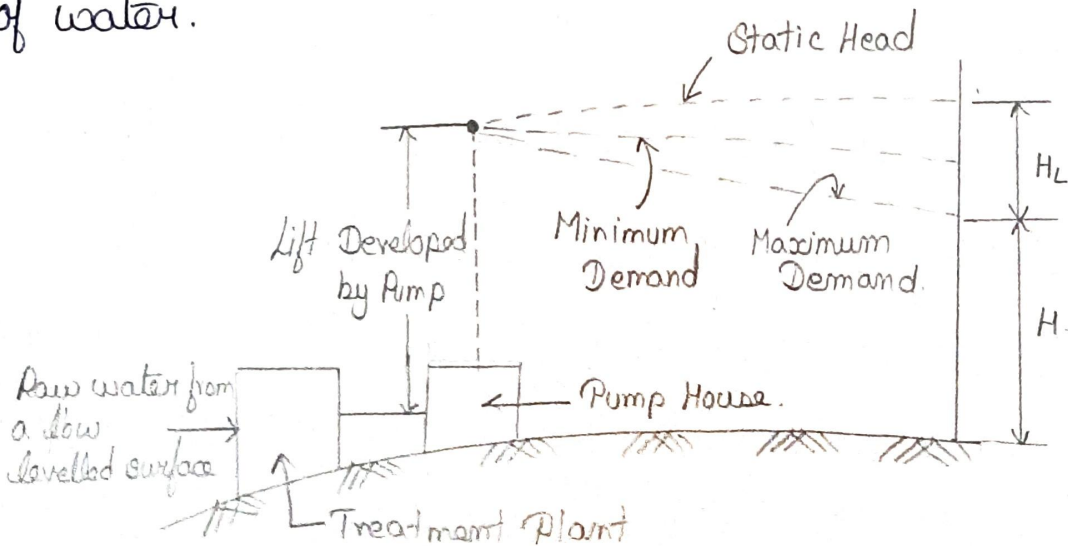 of water.
Static Head
HL
Lift Developed
by Pump
Minimum
Demand
Maximum
Demand.
H.
Raw water from
a low
levelled surface
Pump House.
Treatment Plant